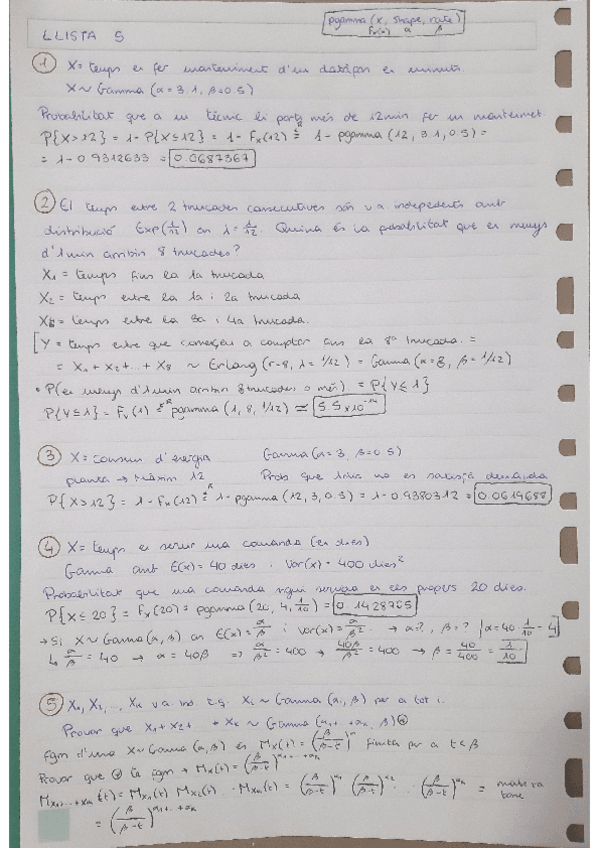 pgamma (x, shape, rate)
Fx(x) α β
LLISTA 5
① X = temps en fer manteniment d'un en minuts.
X ~ Gamma (α=3.1, β=0.5)
Probabilitat que a un tècnic li porti més de 12min fer un manteniment.
P{X>12} = 1 - P{X≤12} = 1 - Fx(12) =ᴿ 1 - pgamma (12, 3.1, 0.5) =
= 1 - 0.9312633 = 0.0687367
② El temps entre 2 trucades consecutives són v.a independents amb
distribució Exp(1/12) on λ=1/12. Quina és la probabilitat que en menys
d'1 min arribin 8 trucades?
X₁ = temps fins la 1a trucada
X₂ = temps entre la 1a i 2a trucada
temps entre la i 4a trucada.
[Y = temps entre que començem a comptar fins la 8ª trucada. =
= X₁ + X₂ + ... + X₈ ~ Erlang (r=8, λ=1/12) = Gamma (α=8, β=1/12)
• P(en menys d'1min arribin 8 trucades o més) = P{Y≤1}
P{Y≤1} = Fy(1) =ᴿ pgamma (1, 8, 1/12) ≃ 5.5x10⁻¹⁴
③ X = consum d'energia Gamma (α=3, β=0.5)
planta → màxim 12 Prob que no es satisfà demanda
P{X>12} = 1 - Fx(12) =ᴿ 1 - pgamma (12, 3, 0.5) = 1 - 0.9380312 = 0.0619688
④ X = temps en servir una comanda (en dies)
Gamma amb E(X) = 40 dies i Var(X) = 400 dies²
Probabilitat que una comanda sigui servida en els propers 20 dies.
P{X≤20} = Fx(20) = pgamma (20, 4, 1/10) = 0.1428765
→ Si X ~ Gamma (α, β) on E(X) = α/β i Var(X) = α/β² → α?, β=? | α = 40 · 1/10 = 4
↳ α/β = 40 → α = 40β => α/β² = 400 → 40β/β² = 400 → β = 40/400 = 1/10
⑤ X₁, X₂, ..., Xn v.a ind t.q. Xi ~ Gamma (αi, β) per a tot i.
Provar que X₁ + X₂ + + Xn ~ Gamma (α₁+ +αn, β)
fgm d'una X ~ Gamma (α, β) és Mx(t) = (β/(β-t))^α finita per a t<β
Provar que té fgm → Mx(t) = (β/(β-t))^(α₁+...+αn)
Mx₁+...+xn (t) = Mx₁(t) Mx₂(t) ... Mxn(t) = (β/(β-t))^α₁ (β/(β-t))^α₂ ... (β/(β-t))^αn =
= (β/(β-t))^(α₁+...+αn)